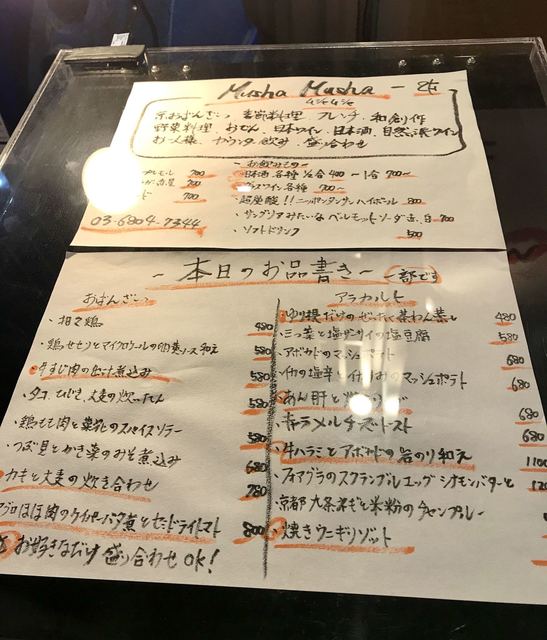 Musha Musha - 2F
ムシャムシャ
京おばんざい 季節料理 フレンチ 和創作
野菜料理 おでん 日本ワイン 日本酒 自然派ワイン
お一人様 カウンタ飲み 盛り合わせ
~ お飲みもの ~
プレモル 700
700
700
03-6804-7344
日本酒各種 ½合 400~ 1合 700~
グラスワイン各種 700~
・超炭酸!! ニッポンタンサンハイボール 800
・サングリアみたいなベルモットソーダ 赤、白 700
・ソフトドリンク 500
~ 本日のお品書き ~ 一部です
おばんざい
・担々鶏 480
・鶏セセリとマイクロウールの 和え 580
・牛すじ肉の 煮込み 580
・タコ、ひじき、大麦の炊いたん 580
・鶏もも肉と菜花のスパイスソテー 580
・つぶ貝とかき菜のみそ煮込み 680
・カキと大麦の炊き合わせ 780
マグロほほ肉の バター煮とセミドライトマト 800
お好きなだけ盛り合わせOK!
アラカルト
ゆり根だけのぜいたく茶わん蒸し 480
・三つ葉と塩サンサイの塩豆腐 580
・アボカドのマッシュポテト 680
・イカの塩辛とイカすみのマッシュポテト 680
あん肝と
・キャラメルチーズトースト 680
・牛ハラミとアボカドの岩のり和え 1100
・フォアグラのスクランブルエッグ シナモンバターと
・京都九条ネギと米粉のチャンプルー
・焼きウニギリゾット